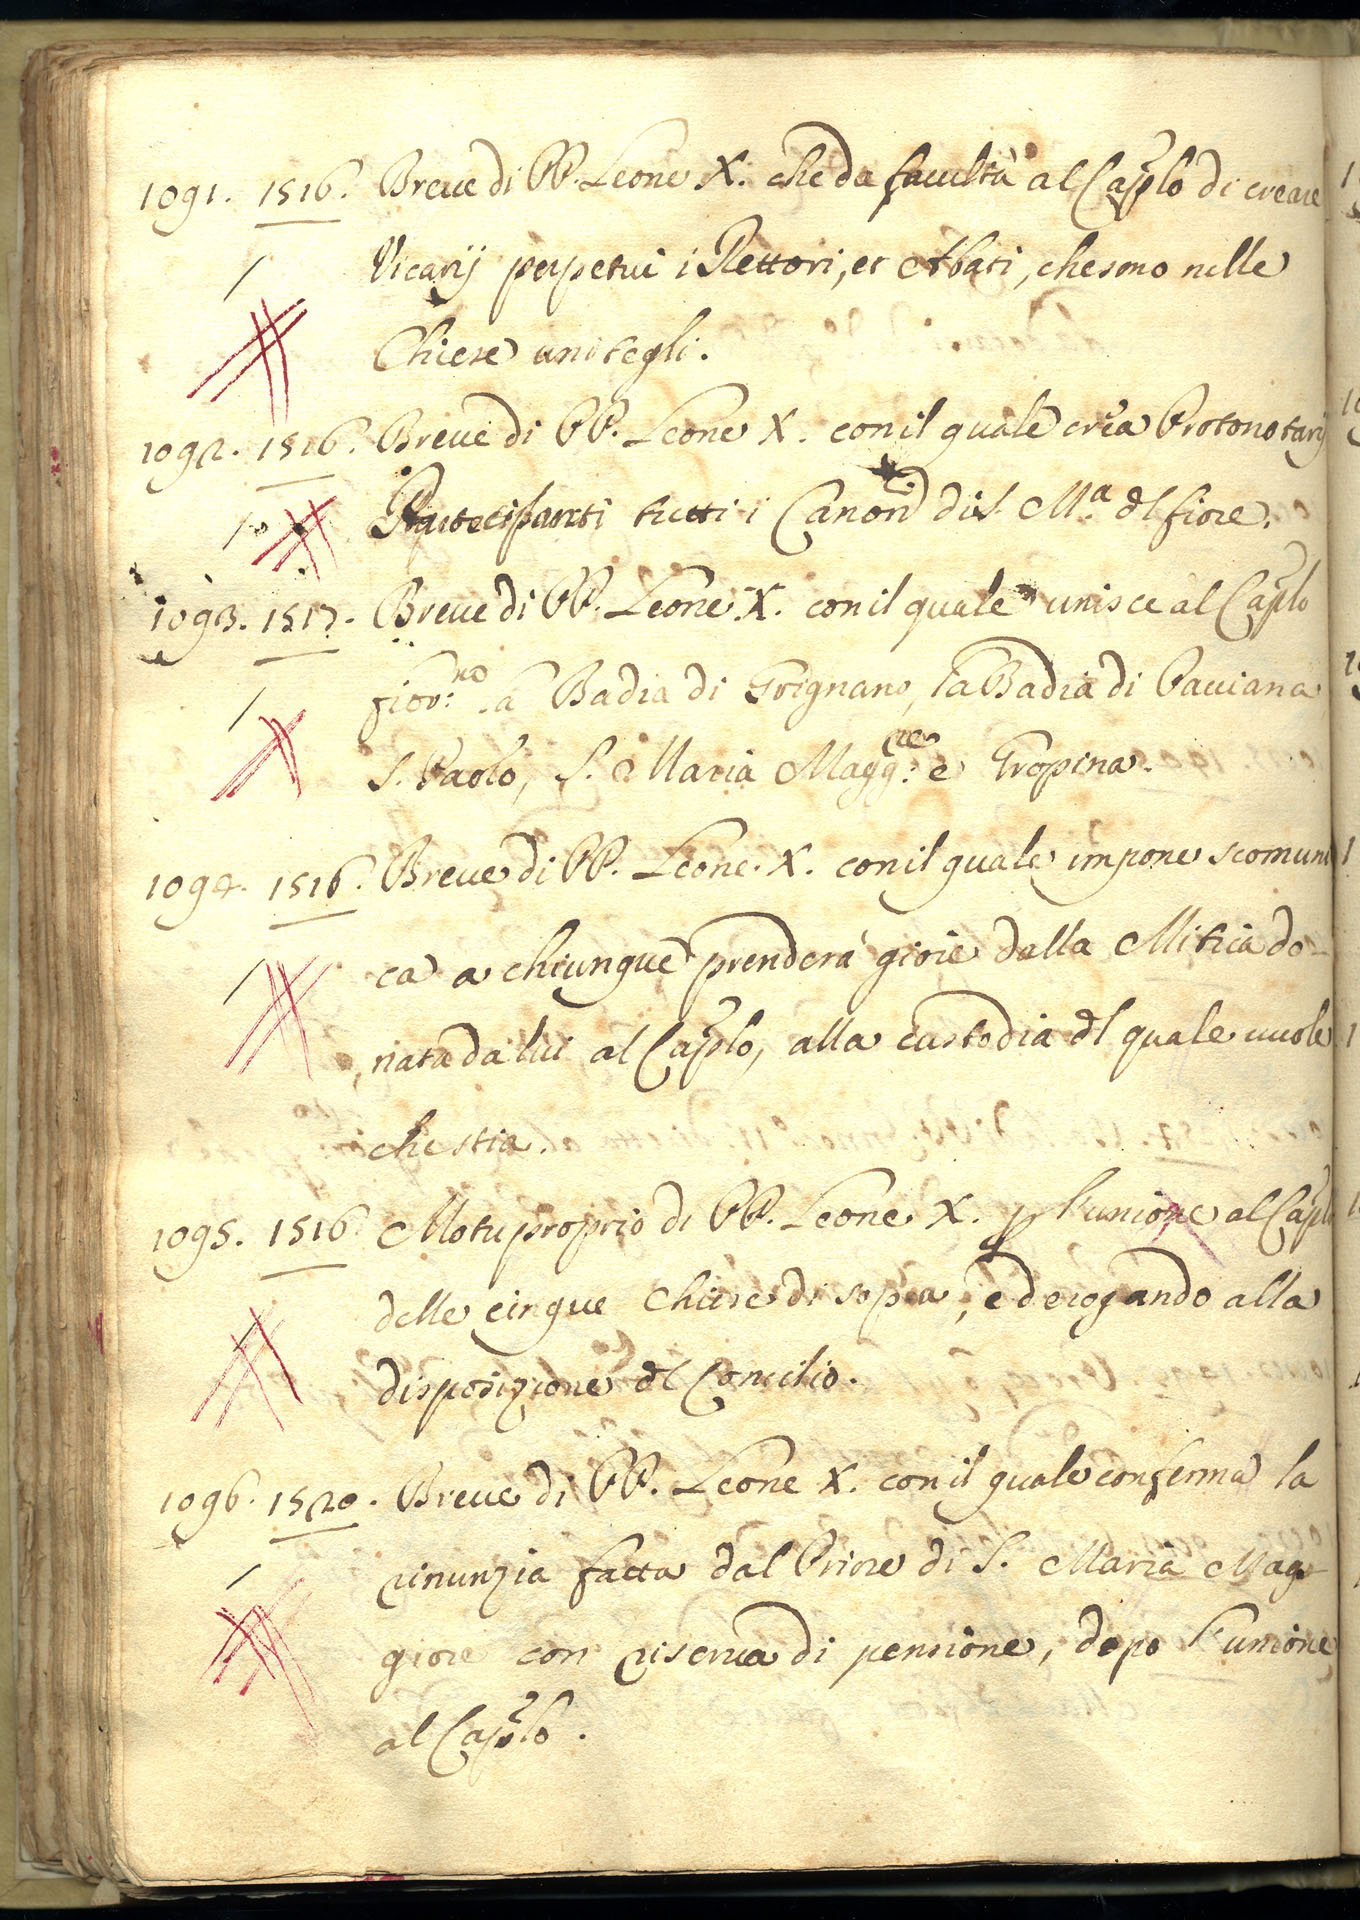 1091. 1516. Breue di PP. Leone X. che da facultà al Caplo di creare
Vicarij perpetui i Rettori, et Abati, che sono nelle
Chiese unitegli.
1092. 1516. Breue di PP. Leone X. con il quale crea Protonotarij
Partecipanti tutti i Canon. di S. M.a dl fiore.
1093. 1517. Breue di PP. Leone X. con il quale unisce al Caplo
fior:no la Badia di Grignano, la Badia di Pacciana
S. Paolo, S. Maria Magg:re e Gropina.
1094. 1516. Breue di PP. Leone X. con il quale impone scomuni
ca a chiunque prenderà gioie dalla Mitria do-
nata da lui al Caplo, alla custodia dl quale uuole
che stia.
1095. 1516. Motuproprio di PP. Leone X. p l'unione al Caplo
delle cinque Chiese di sopra, ederogando alla
disposizione dl Concilio.
1096. 1520. Breue di PP. Leone X. con il quale conferma la
rinunzia fatta dal Priore di S. Maria Mag-
giore con riserua di pensione, dopo l'unione
al Caplo.